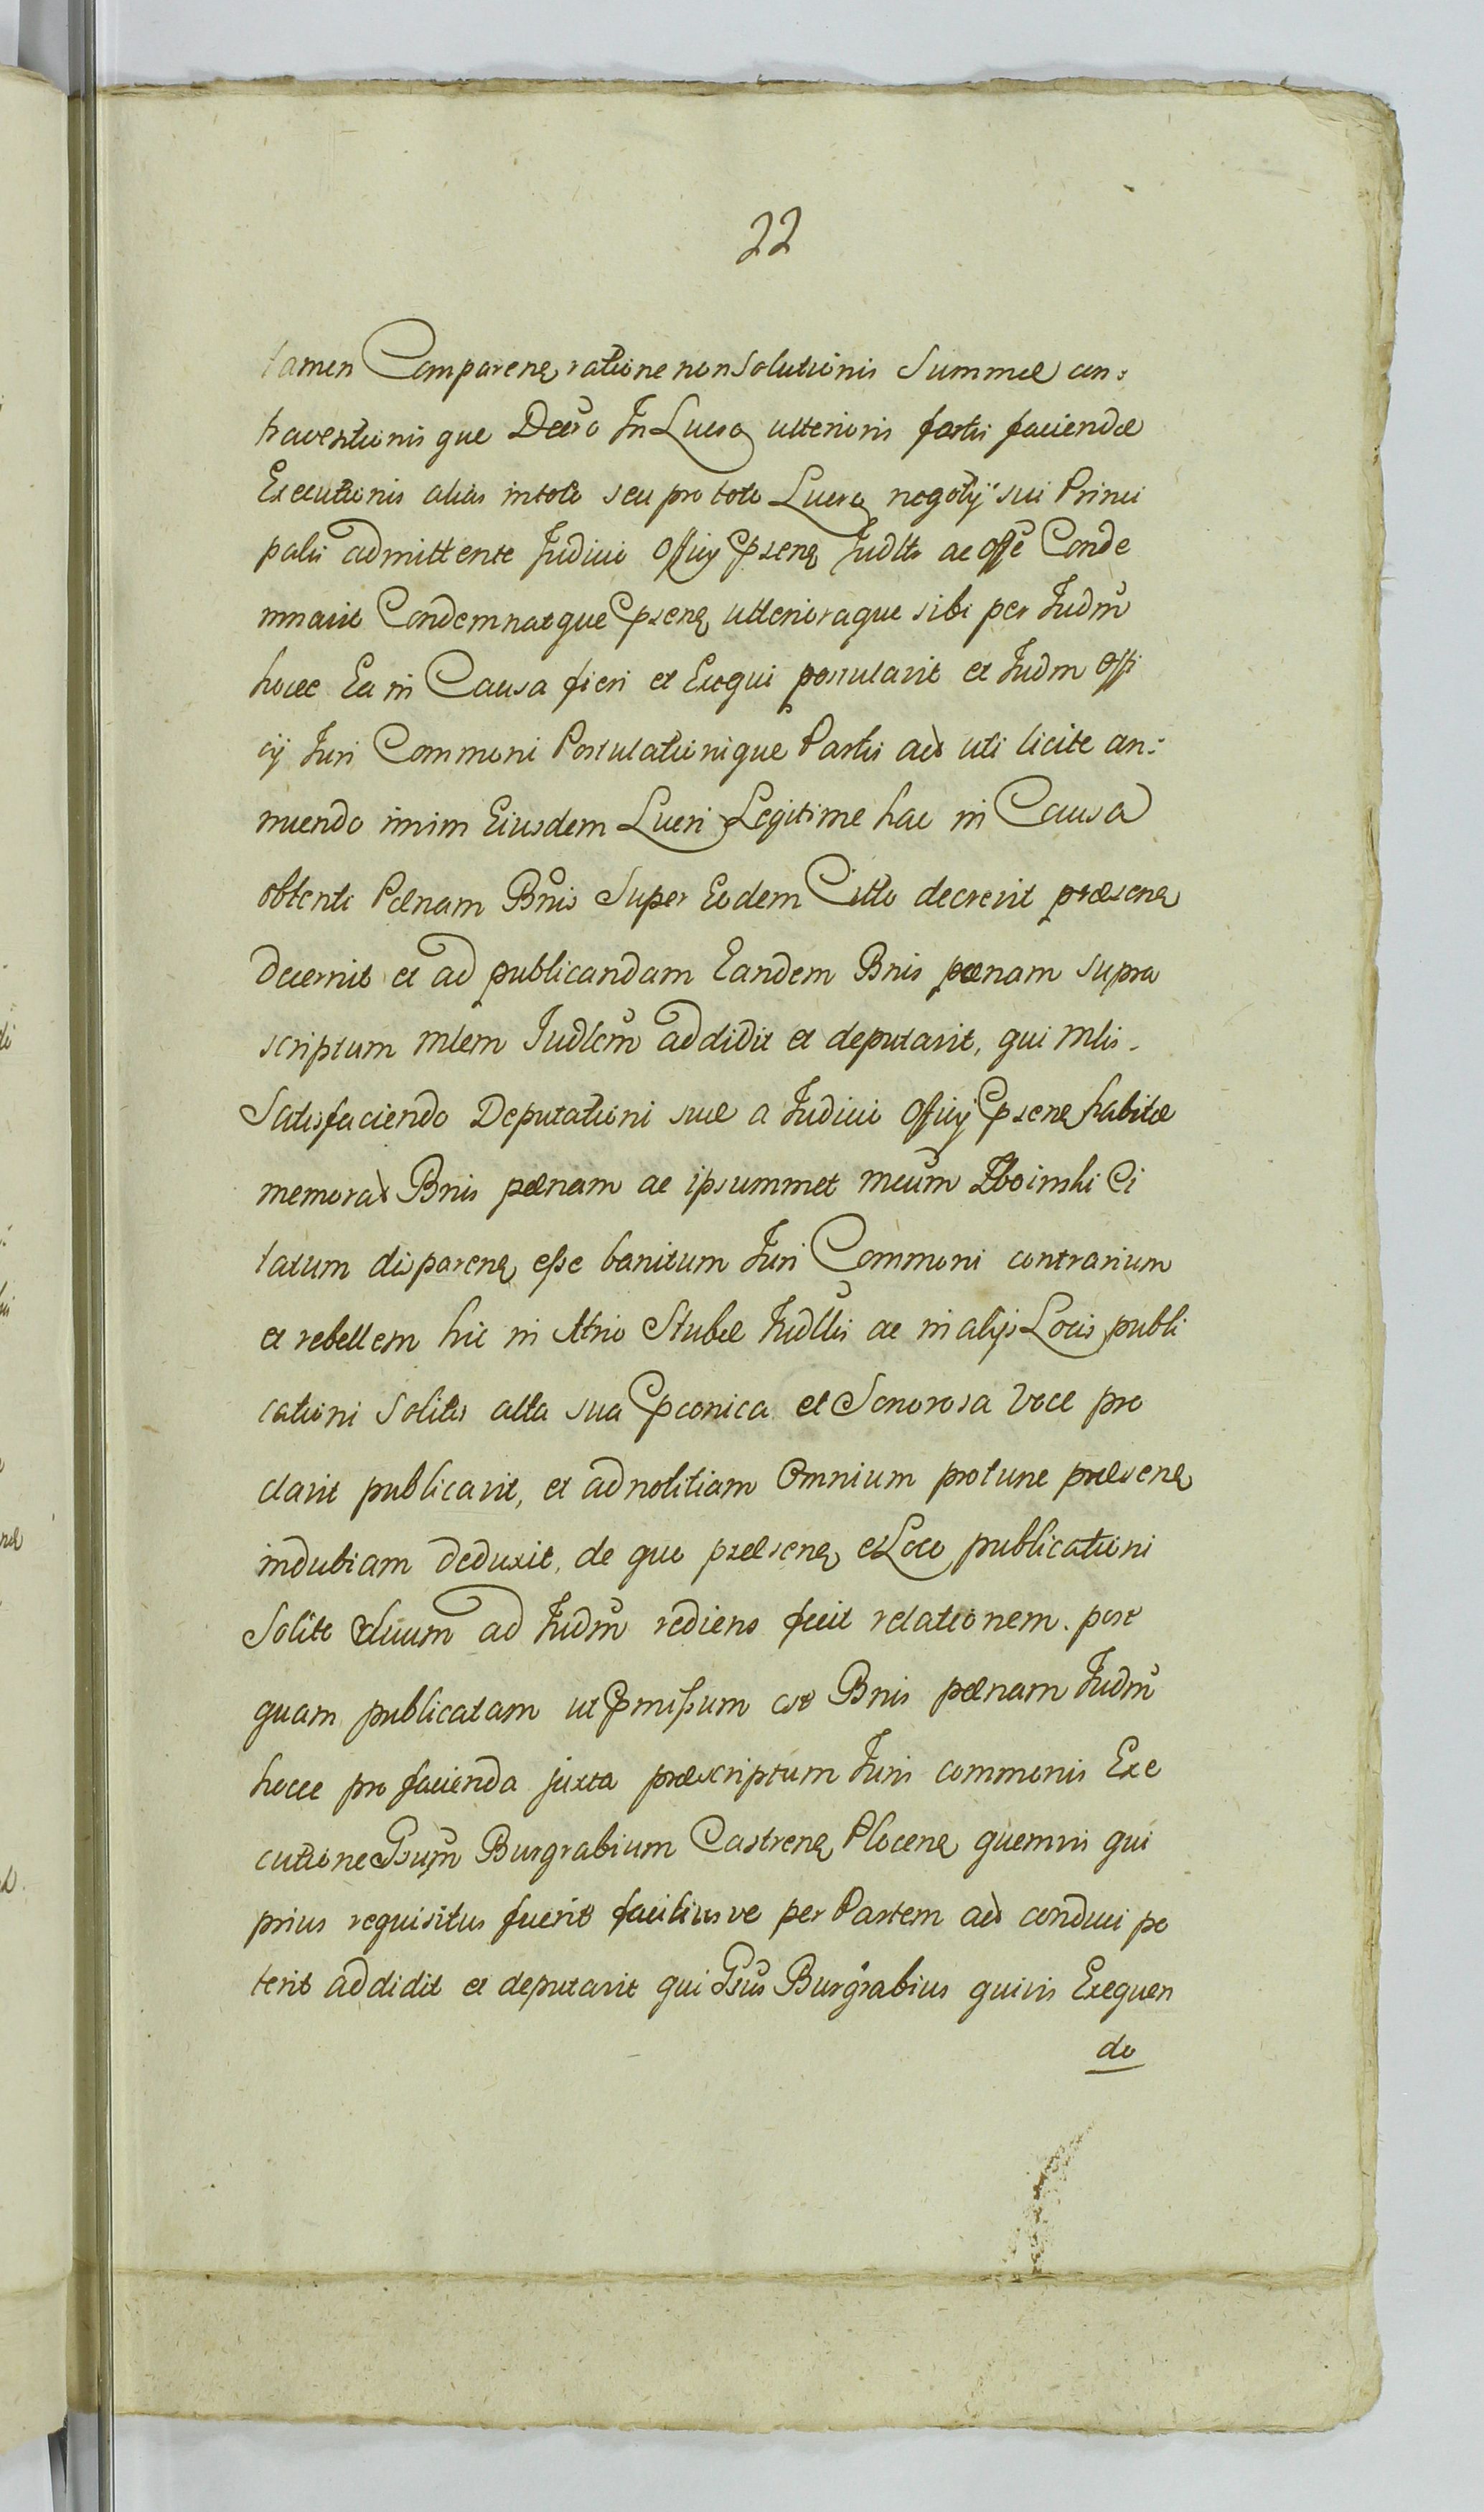 22
tamen Comparenq ratione non Solutionis Summæ con:
traventionis que Decro In Lucro ulterioris fortis faciendæ
Executionis alias in toto seu pro toto Lucro negotÿ sui Princi
palis admittente Judicii Officÿ Ꝓsenq Judlr ac Offe Conde
mnavit Condemnatque Ꝓsenq ulterioraque sibi per Judm
hocce Ea in Causa fieri et Exequi postulavit et Judm Offi
cÿ Juri Commoni Postulationique Partis act uti licite an:
nuendo inim Eiusdem Lucri Legitime hac in Causa
obtenti Pœnam Bnis Super Eodem Citto decrevit præsenq
decernit et ad publicandam Eandem Bnis pœnam supra
scriptum mlem Judlem addidit et deputavit, qui Mlis
Satisfaciendo Deputationi suæ a Judicii Officÿ Ꝓsenq habitæ
memorat Bnis pœnam ac ipsummet Mcum Zboinski Ci
tatum disparenq esse banitum Juri Commoni contrarium
et rebellem hic in Atrio Stubæ Judllis ac in alÿs Locis publi
cationi Solitis alta sua Ꝓconica et Sonorosa Voce pro
clavit publicavit, et ad notitiam Omnium protunc præsenq
indubiam deduxit, de quo præsenq et Loco publicationi
Solito duum ad Judm rediens fecit relationem. post
quam publicatam ut Ꝓmissum est Bnis pœnam Judm
hocce pro facienda juxta præscriptum Juris commonis Exe
cutione Gsum Burgrabium Castrenq Plocenq quemvis qui
prius requisitus fuerit faciliusve per Partem act conduci po
terit addidit et deputavit qui Gsus Burgrabius quivis Exequen
do